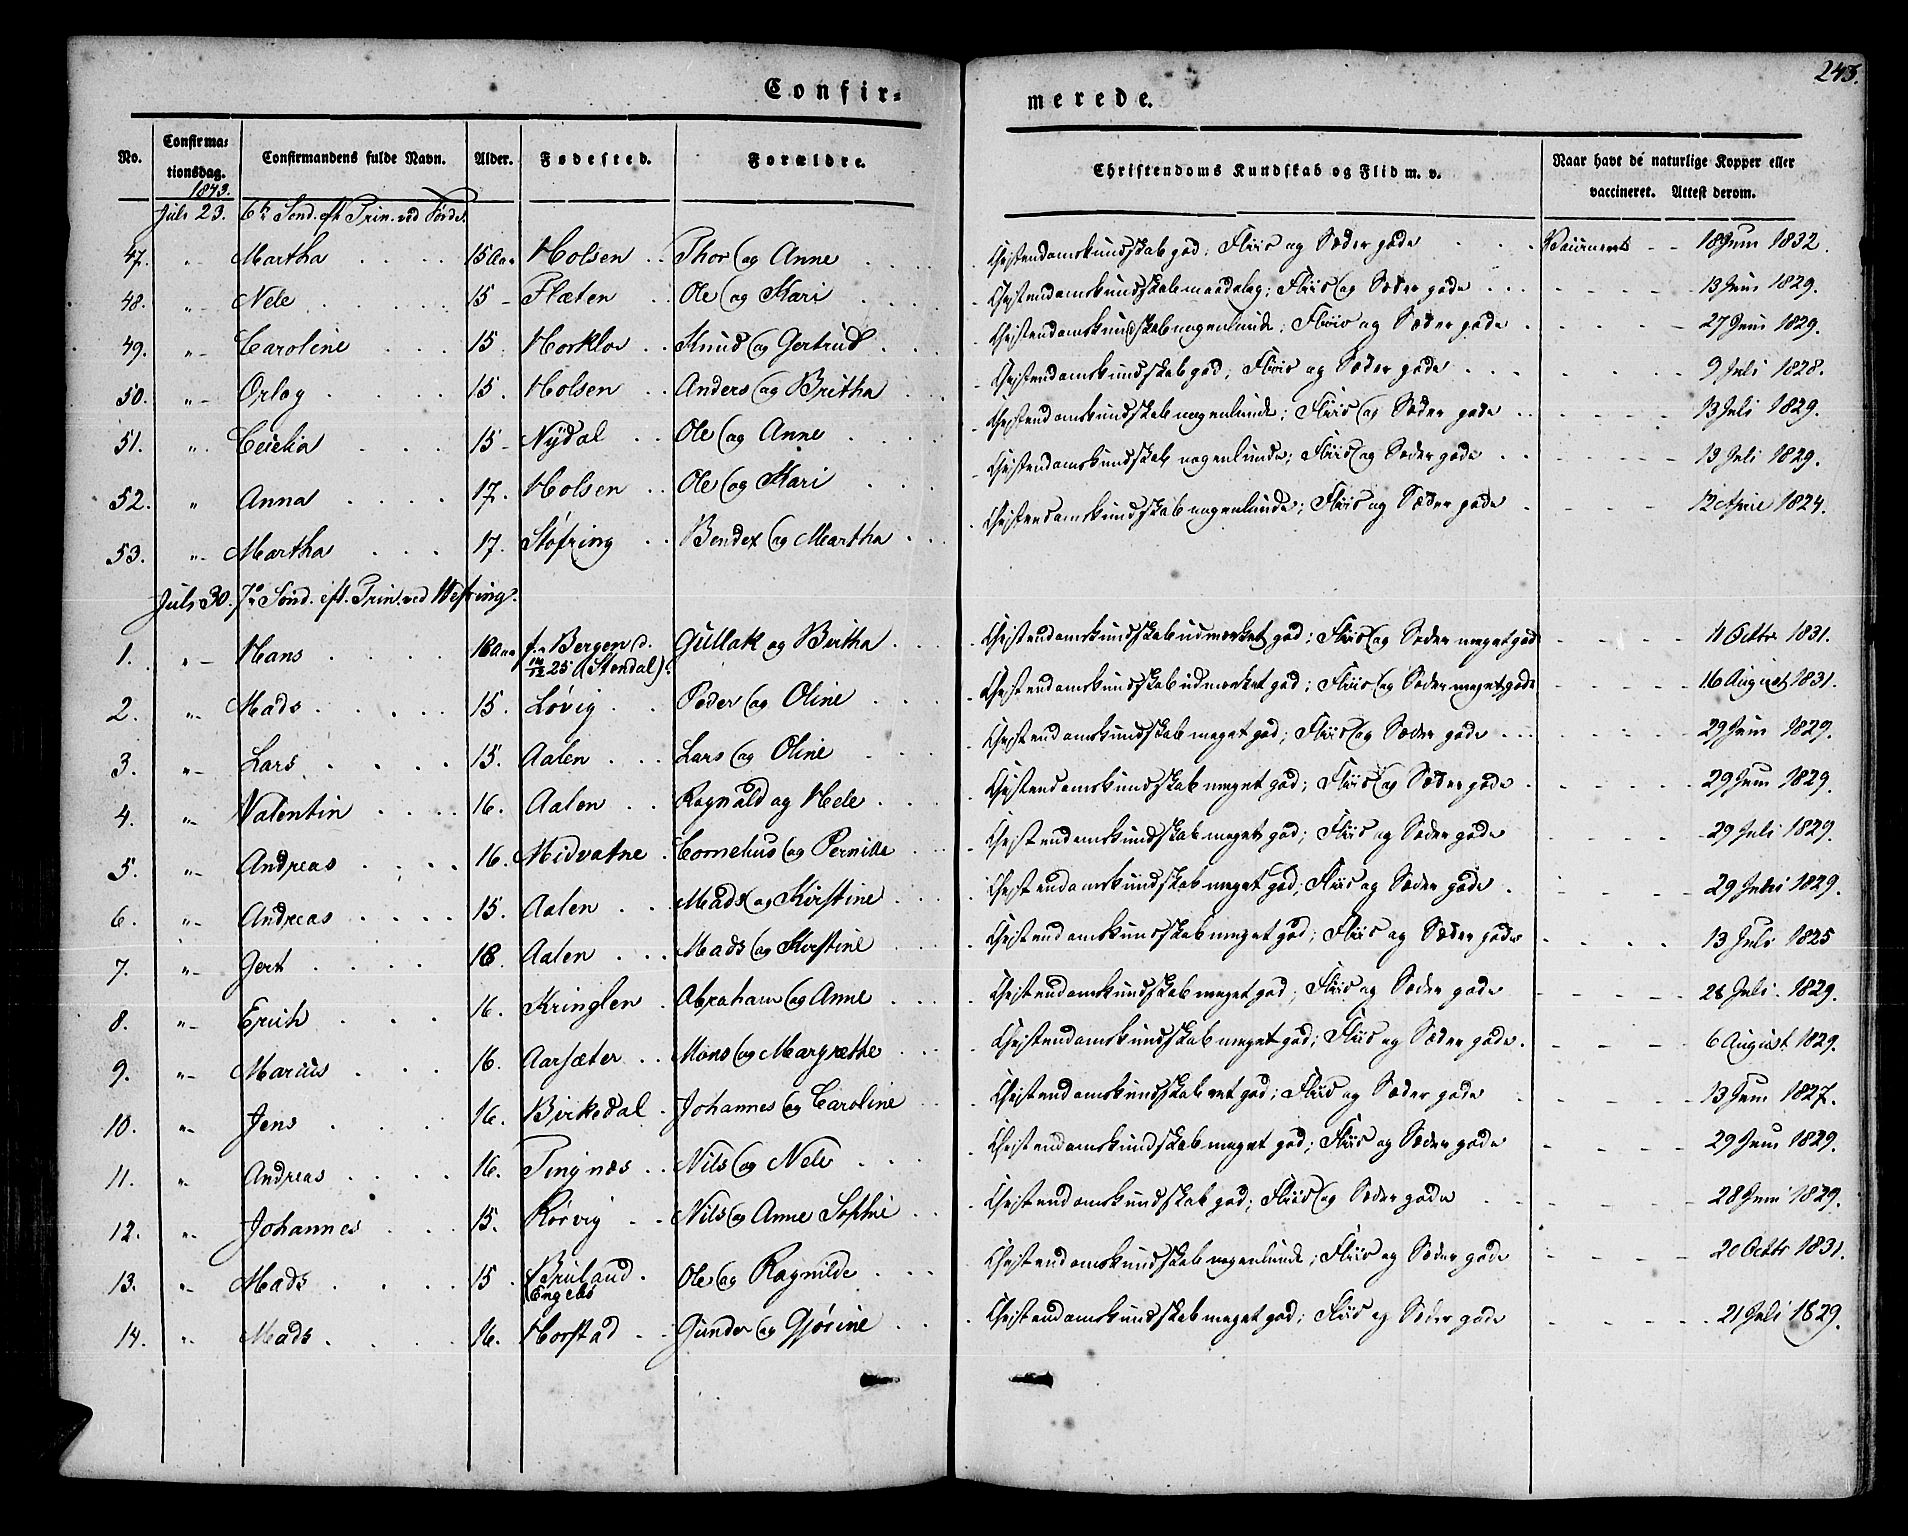 243.
Confir-
merede.
No. Confirma-tionsdag. Confirmandens fulde Navn. Alder. Fødested. Forældre. Christendoms Kundskab og Flid m. v. Naar havt de naturlige Kopper eller vaccineret. Attest derom.
1843.
Juli 23. 6te Sønd. eft Trin. ved Førde
47. " Martha 15 Aar Holsen Thor og Anne Christendomskundskab god; Fliis og Sæder gode Vaccineret 18 Juni 1832.
48. " Nele 15 Flæten Ole og Kari Christendomskundskab maadelig; Fliis og Sæder gode 13 Juni 1829.
49. " Caroline 15 Horklov Knud og Gertrud Christendomskundskab nogenlunde; Fliis og Sæder gode 27 Juni 1829.
50. " Orlog 15. Holsen Anders og Britha Christendomskundskab god; Fliis og Sæder gode 9 Juli 1828.
51. " Cecilia 15 Nydal Ole og Anne Christendomskundskab nogenlunde; Fliis og Sæder gode 13 Juli 1829.
52. " Anna 17. Holsen Ole og Kari Christendomskundskab nogenlunde; Fliis og Sæder gode 13 Juli 1829.
53. " Martha 17. Støfring Bendex og Martha Christendomskundskab nogenlunde; Fliis og Sæder gode 12 April 1824.
Juli 30. 7de Sønd. eft. Trin. ved Wefring.
1. " Hans 18 Aar f. Bergen d. Gullak og Birtha Christendomskundskab udmærket god; Fliis og Sæder meget gode 11 Octbr 1831.
14/12 25 (Stendal)
2. " Mads 15. Løvig Peder og Oline Christendomskundskab udmærket god; Fliis og Sæder meget gode 16 August 1831.
3. " Lars 15. Aalen Lars og Oline Christendomskundskab meget god; Fliis og Sæder gode 29 Juni 1829.
4. " Valentin 16. Aalen Ragnald og Nele Christendomskundskab meget god; Fliis og Sæder gode 29 Juni 1829.
5. " Andreas 16. Midvatne Cornelius og Pernille Christendomskundskab meget god; Fliis og Sæder gode 29 Juli 1829.
6. " Andreas 15. Aalen Mads og Kirstine Christendomskundskab meget god; Fliis og Sæder gode 29 Juli 1829.
7. " Gert 18. Aalen Mads og Kirstine Christendomskundskab meget god; Fliis og Sæder gode 13 Juli 1825
8. " Erich 16. Kringlen Abraham og Anne Christendomskundskab meget god; Fliis og Sæder gode 28 Juli 1829.
9. " Marius 16. Aarsæter Mons og Margrethe Christendomskundskab meget god; Fliis og Sæder gode 6 August 1829.
10. " Jens 16. Birkedal Johannes og Caroline Christendomskundskab ret god; Fliis og Sæder gode 13 Juni 1827.
11. " Andreas 16. Tingnæs Nils og Nele Christendomskundskab meget god; Fliis og Sæder gode 29 Juni 1829.
12. " Johannes 15. Rørvig Nils og Anne Sophie Christendomskundskab god; Fliis og Sæder gode 28 Juni 1829.
13. " Mads 15 Bruland Ole og Ragnilde Christendomskundskab nogenlunde; Fliis og Sæder gode 20 Octbr 1831.
Engebø
14. " Mads 16. Horstad Gunder og Gjørine Christendomskundskab meget god; Fliis og Sæder gode 21 Juli 1829.